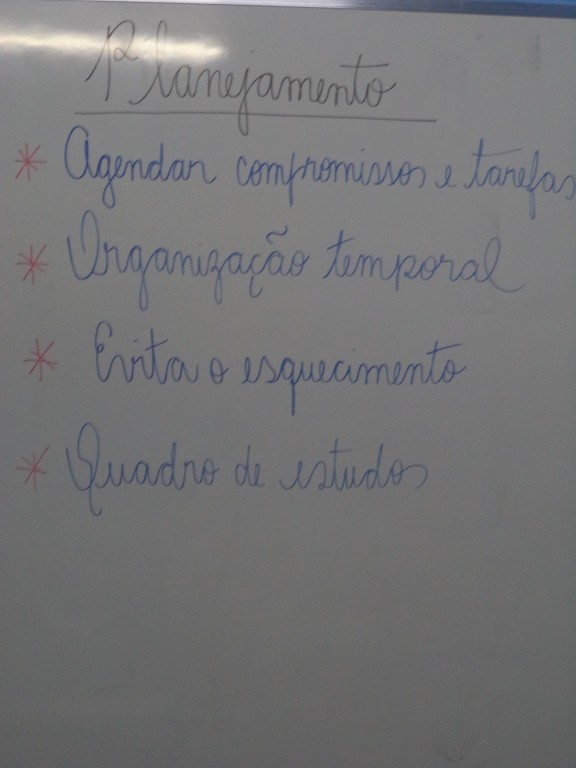 Planejamento
* Agendar compromissos e tarefas
* Organização temporal
* Evita o esquecimento
* Quadro de estudos